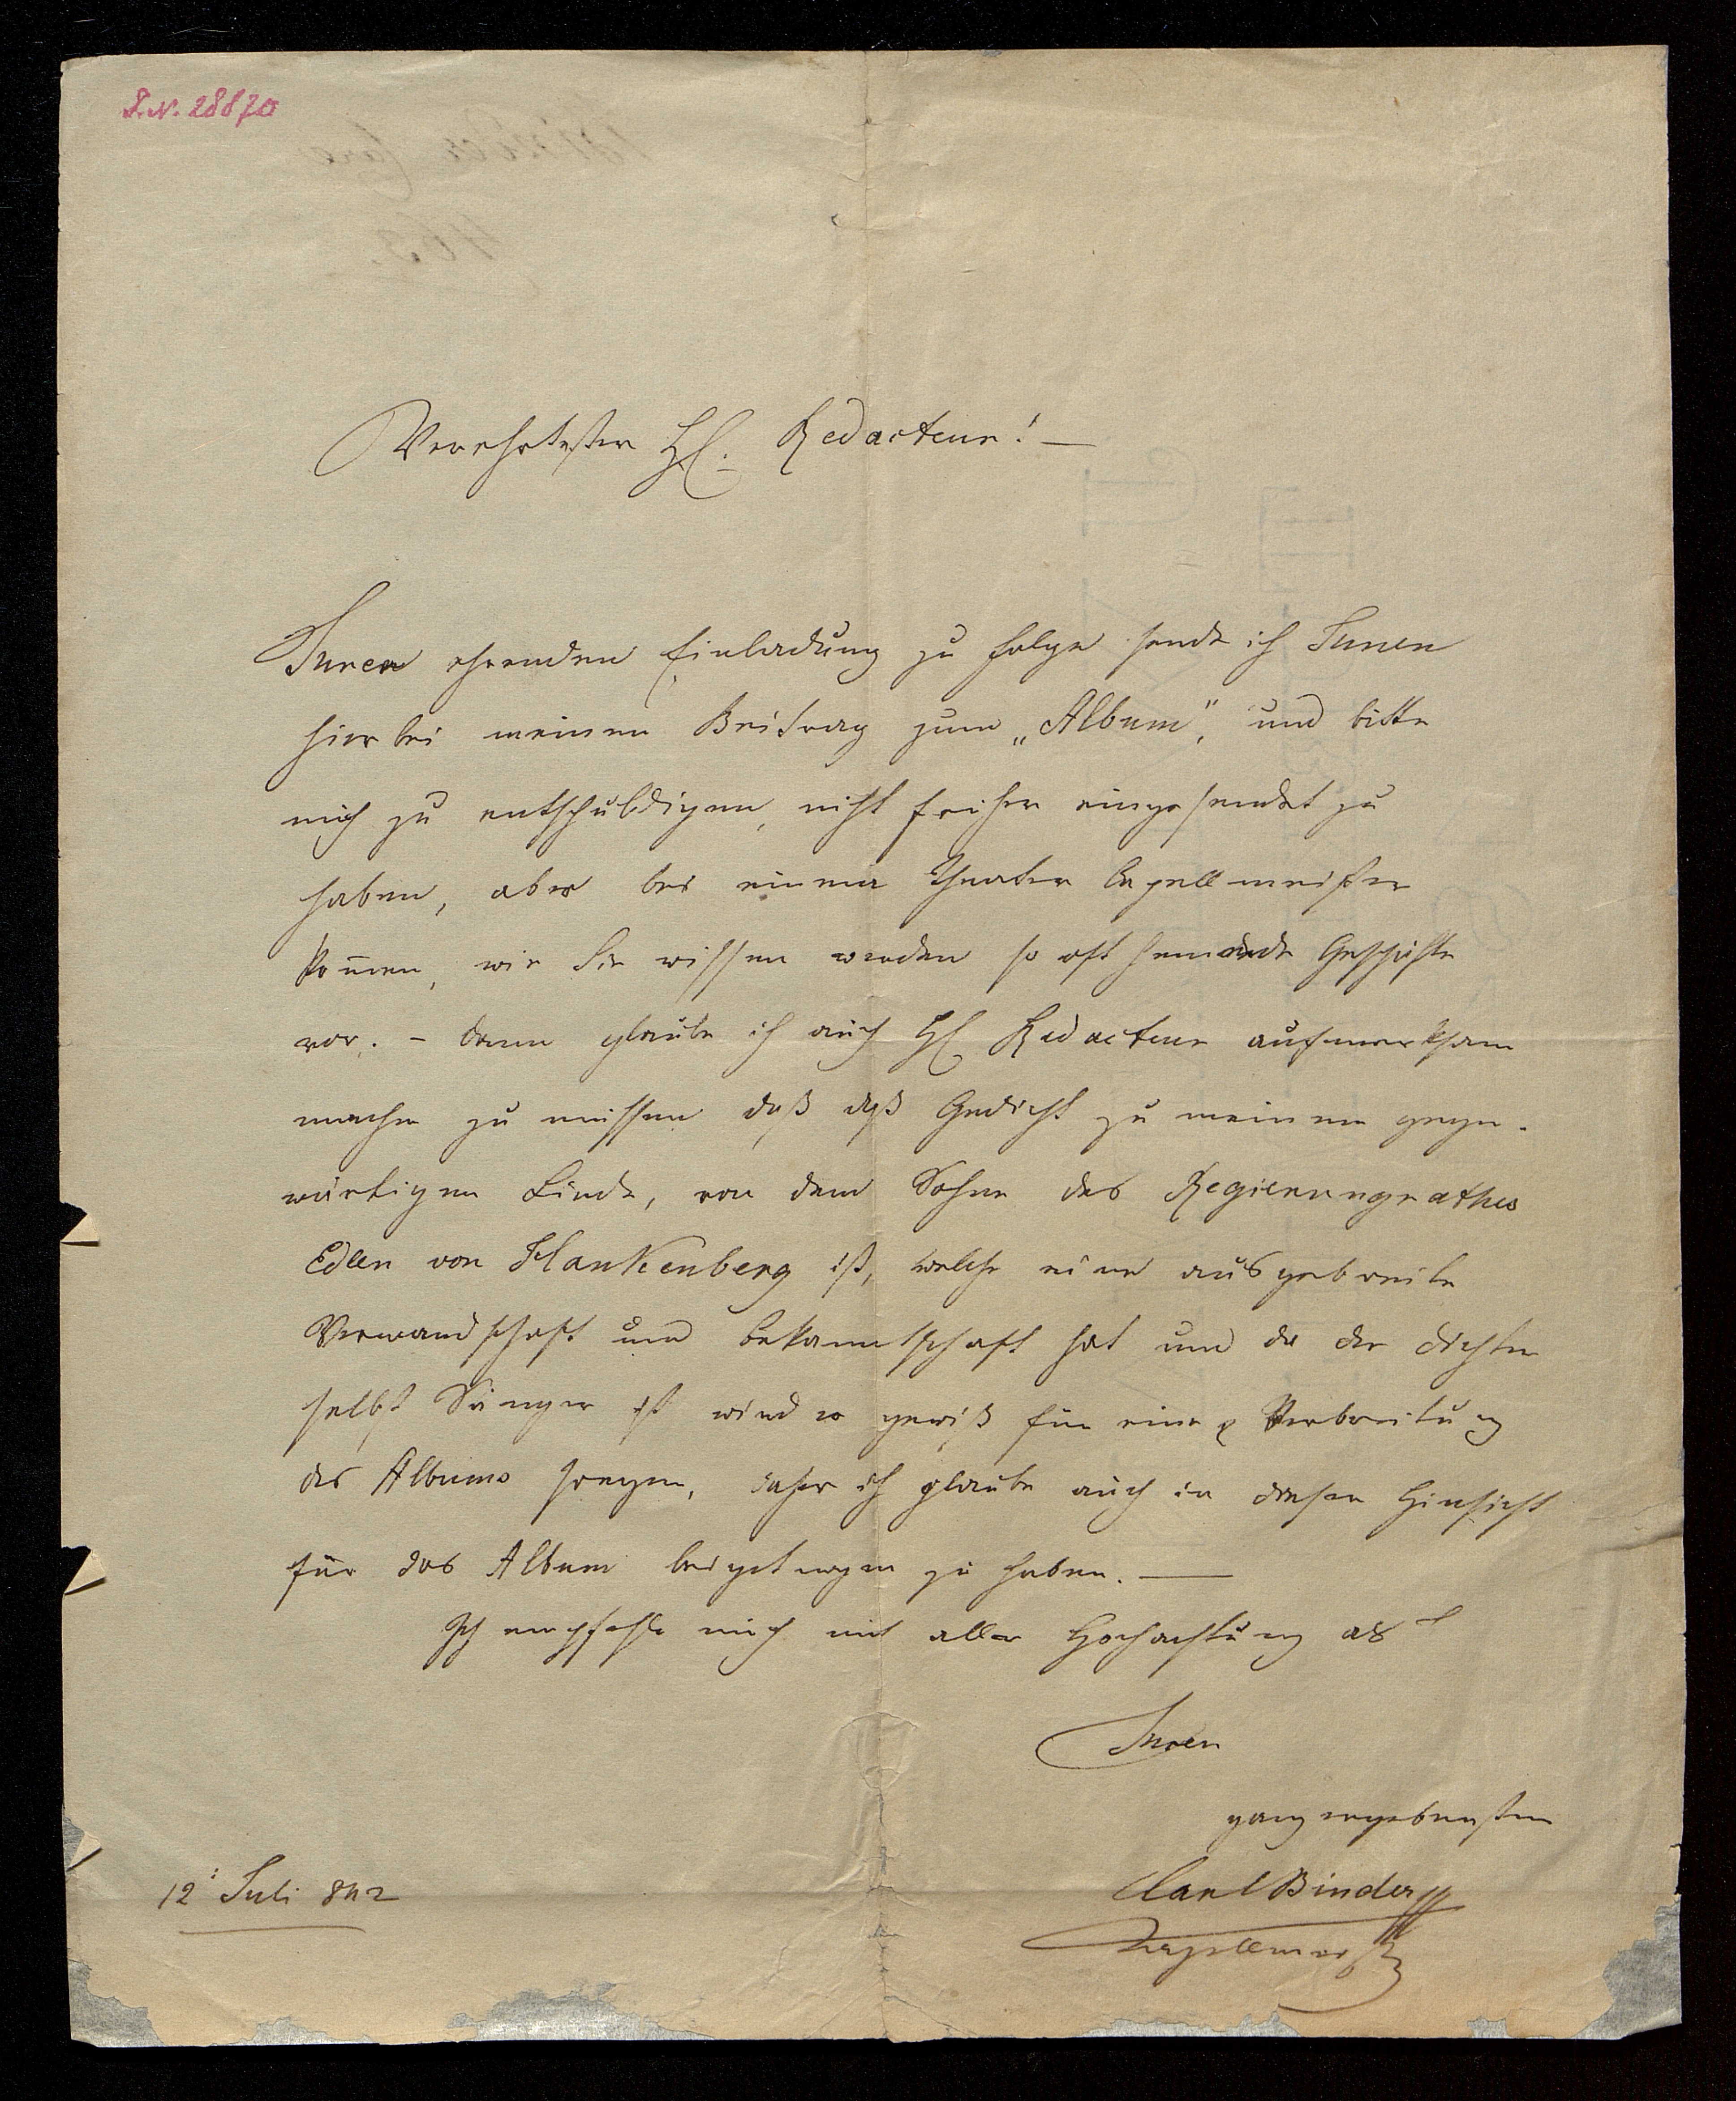 I.N. 28870
Verehrtester H. Redacteur! —
Ihrer ehrenden Einladung zu folge sende ich Ihnen
hierbei meinen Beitrag zum „Album", und bitte
mich zu entschuldigen, nicht früher eingesendet zu
haben, aber bei einem Theater Capellmeister
kom̄en, wie Sie wissen werden so oft hemmende Geschäfte
vor. – dann glaube ich auch H Redacteur aufmerksam
machen zu müssen daß daß Gedicht zu meinem gegen-
wärtigen Liede, von dem Sohne des Regierungrathes
Edlen von Plankenberg ist, welche eine ausgebreite
Verwandschaft und bekanntschaft hat und da der dichter
selbst Sänger ist wird er gewiß für eine Verbreitung
des Albums sorgen, daher ich glaube auch in dieser Hinsicht
für das Album beigetragen zu haben. —
Ich empfehle mich mit aller Hochachtung als
Ihren
ganz ergebensten
Carl Binder
Kapellmeister
12: Juli 842